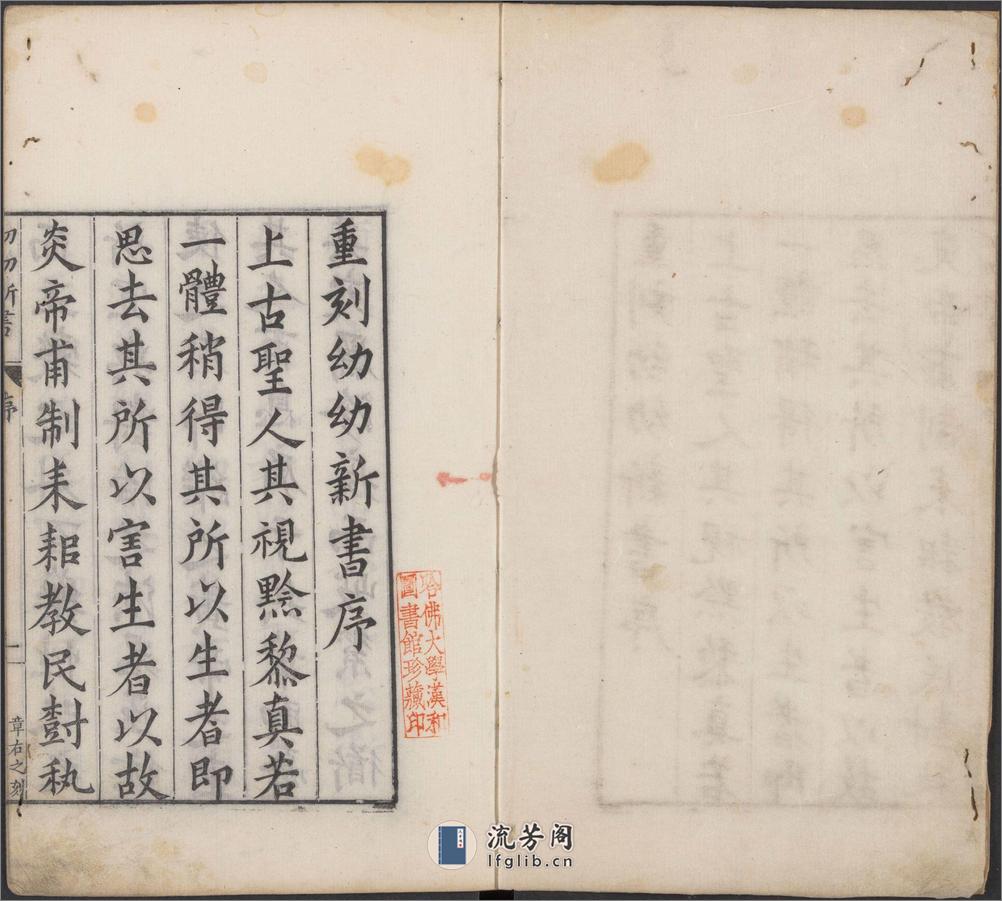 重刻幼幼新書序
上古聖人其視黔黎真若
一體稍得其所以生者即
思去其所以害生者以故
炎帝甫制耒耜教民樹秇
幼幼新書
序
一
章右之刻
哈佛大學漢和
圖書館珍藏印
流芳阁
lfglib.cn